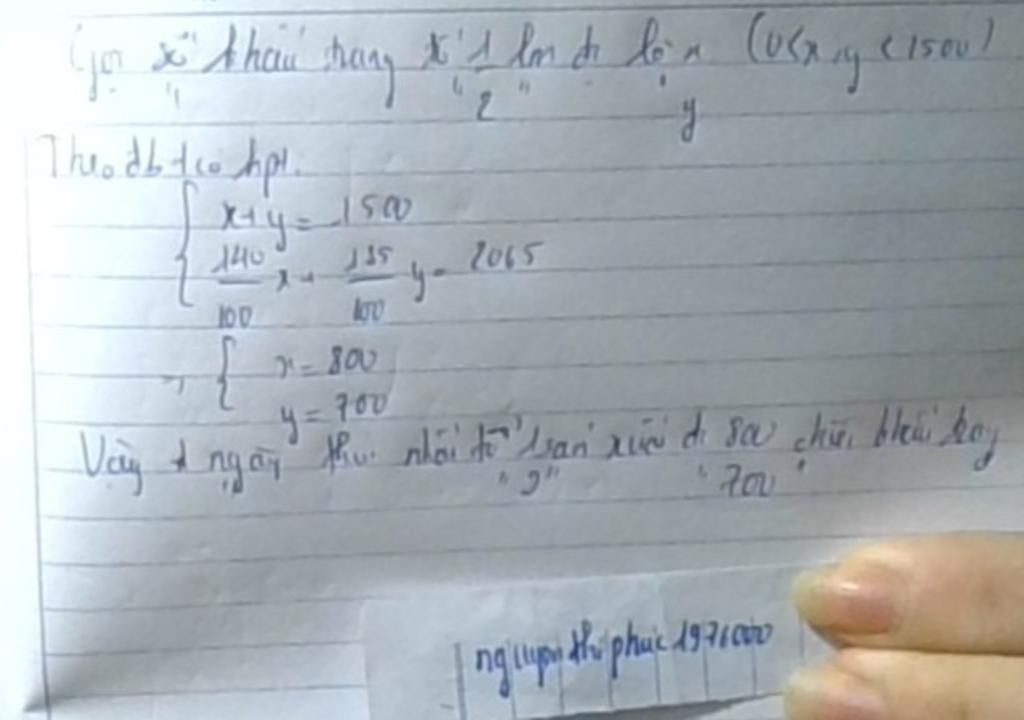 Gọi số khẩu trang tổ 1 làm đc là x (0<x,y<1500)
" " 2 " y
Theo đb ta có hpt.
x+y=1500
140/100 x + 135/100 y = 2065
→ x=800
y=700
Vậy ngày thứ nhất tổ 1 sản xuất đc 800 chiếc khẩu trang
" 2 " " 700 "
nguyen thi phuc 1976000